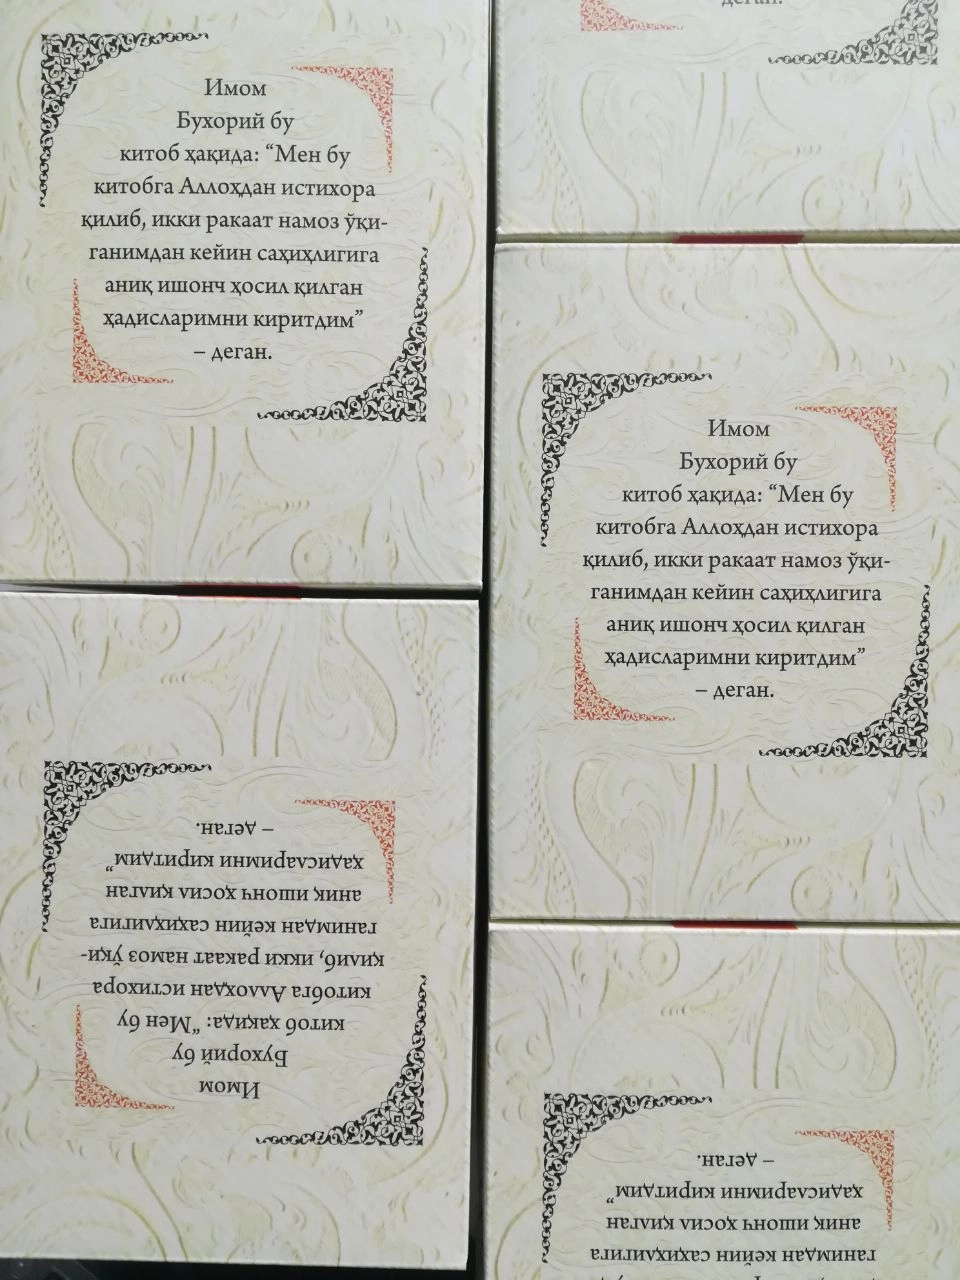 деган.
Имом
Бухорий бу
китоб ҳақида: “Мен бу
китобга Аллоҳдан истихора
қилиб, икки ракаат намоз ўқи-
ганимдан кейин саҳиҳлигига
аниқ ишонч ҳосил қилган
ҳадисларимни киритдим”
– деган.
Имом
Бухорий бу
китоб ҳақида: “Мен бу
китобга Аллоҳдан истихора
қилиб, икки ракаат намоз ўқи-
ганимдан кейин саҳиҳлигига
аниқ ишонч ҳосил қилган
ҳадисларимни киритдим”
– деган.
Имом
Бухорий бу
китоб ҳақида: “Мен бу
китобга Аллоҳдан истихора
қилиб, икки ракаат намоз ўқи-
ганимдан кейин саҳиҳлигига
аниқ ишонч ҳосил қилган
ҳадисларимни киритдим”
– деган.
ганимдан кейин саҳиҳлигига
аниқ ишонч ҳосил қилган
ҳадисларимни киритдим”
– деган.